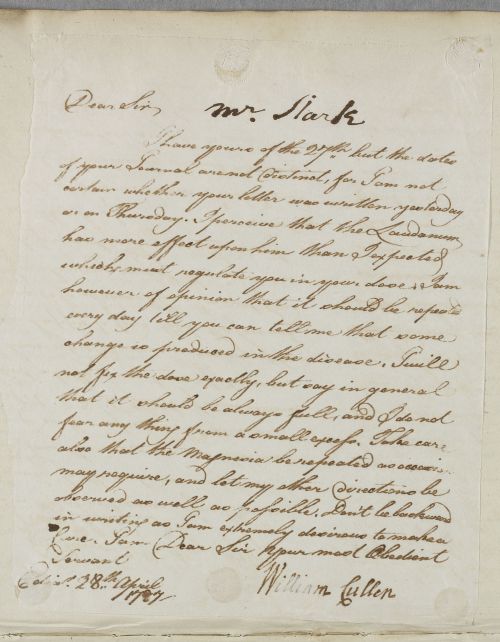 Dear Sir,
Mr. Stark
I have yours of the 27th. but the dates
of your Journal are not distinct for I am not
certain whether your letter was written yesterday
or on Thursday. I perceive that the Laudanum
has more effect upon him than I expected,
which must regulate you in your dose. I am
however of opinion that it should be repeated
every day till you can tell me that some
change is produced in the disease. I will
not fix the dose exactly, but say in general
that it should be always full, and I do not
fear any thing from a small excess. Take care
also that the Magnesia be repeated as occasion
may require, and let my other directions be
observed as well as possible. Don't be backward
in writing as I am extremely desirous to make a
Cure. I am Dear Sir Your most Obedient
Servant
William Cullen
Edinr. 28th. April